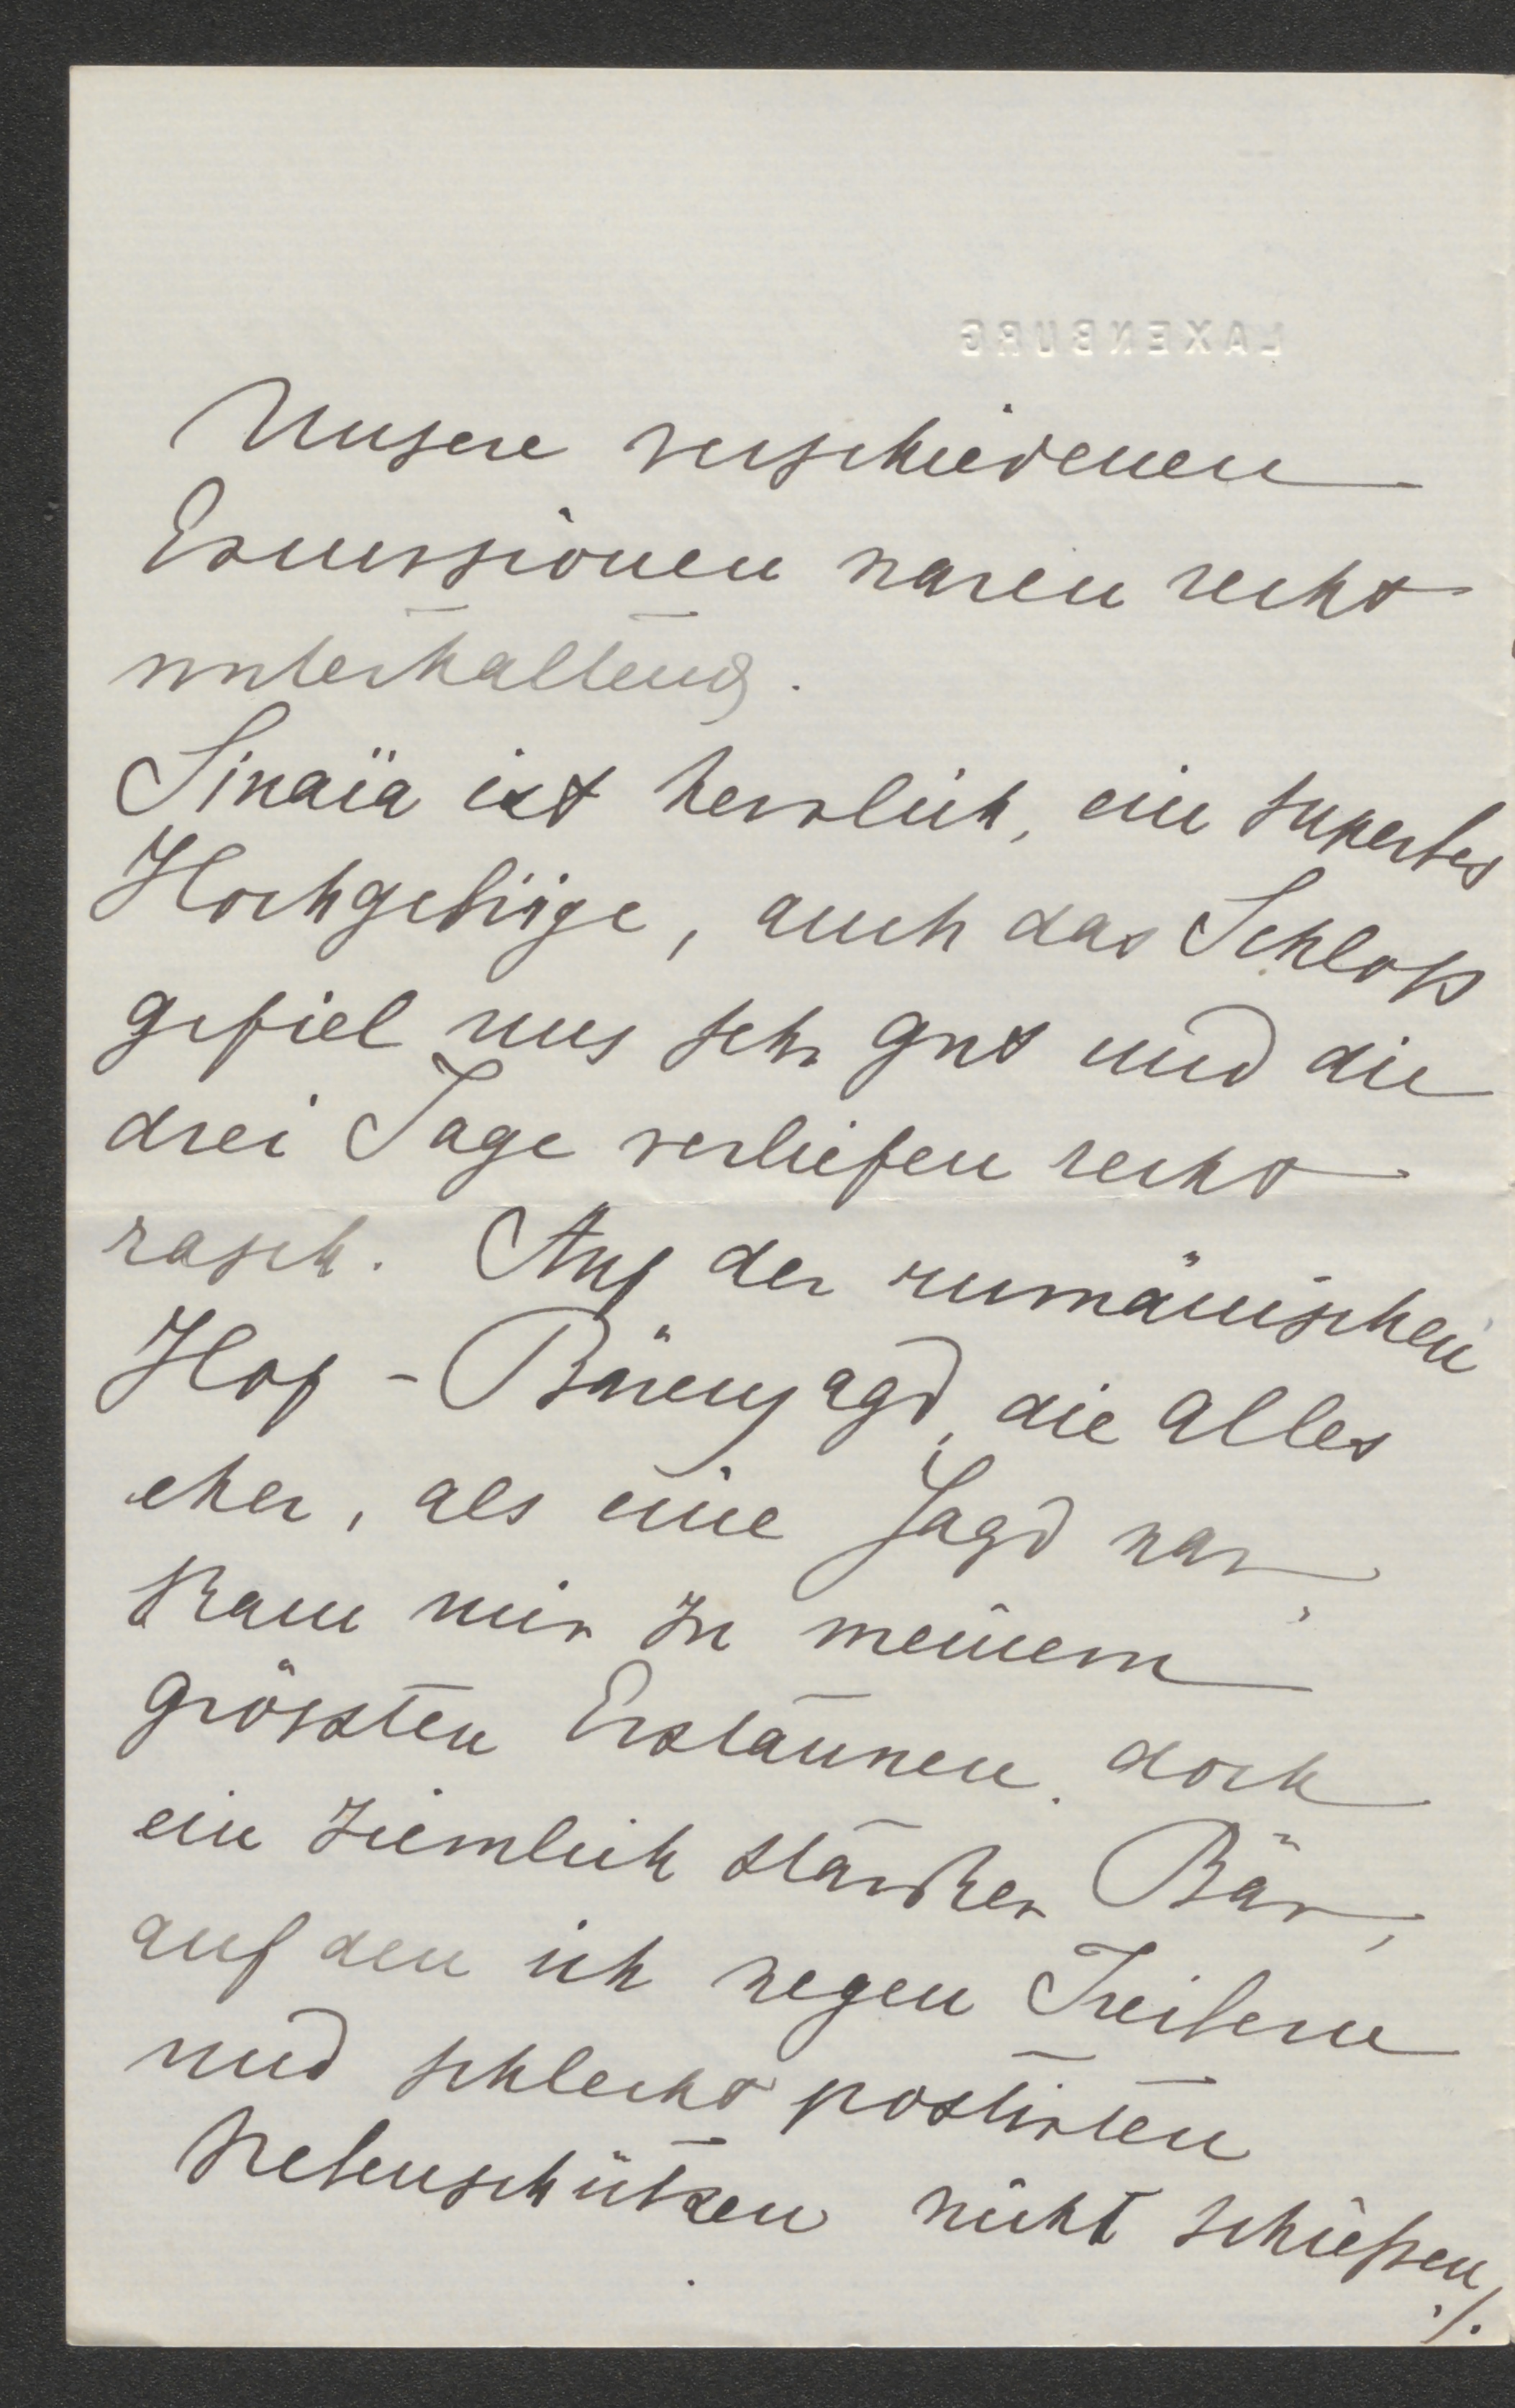 LAXENBURG
Unsere verschiedenen
Excursionen waren recht
unterhaltend.
Sinaïa ist herrlich, ein superbes
Hochgebirge, auch das Schloß
gefiel uns sehr gut und die
drei Tage verliefen recht
rasch. Auf der rumänischen
Hof-Bärenjagd, die alles
eher, als eine Jagd war,
kam mir zu meinem
grössten Erstaunen doch
ein ziemlich starker Bär,
auf den ich wegen Treibern
und schlecht postirten
Nebenschützen nicht schießen
./.